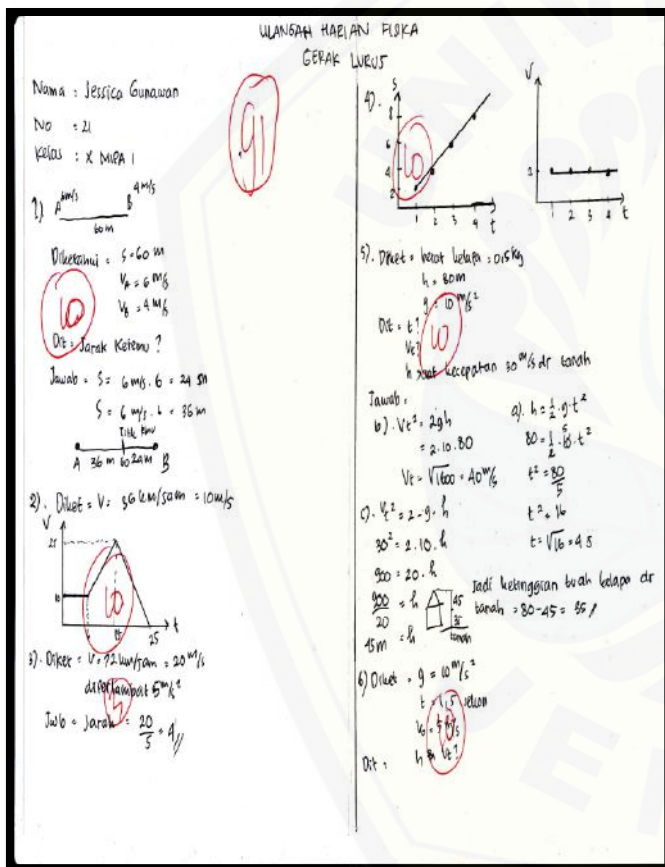 ULANGAN HARIAN FISIKA
GERAK LURUS
Nama : Jessica Gunawan
No : 21
Kelas : X MIPA 1
91
1) A 6m/s B 4m/s
60 m
Diketahui : S = 60 m
VA = 6 m/s
VB = 4 m/s
10
Dit : Jarak Ketemu ?
Jawab :
S = 6 m/s . 6 = 36 m
A 36 m 60 24m B
2). Diket : V = 36 km/jam = 10 m/s
V
25
10
10
25 t
3). Diket : V = 72 km/jam = 20 m/s
diperlambat 5 m/s²
Jwb : Jarak = 20/5 = 4 //
4).
S
8
6
4
2
1 2 3 4 t
10
V
2
1 2 3 4 t
5). Diket : berat kelapa = 0,5 kg
h = 80m
g = 10 m/s²
Dit : t?
Vt?
10
h saat kecepatan 30 m/s dr tanah
Jawab :
b). Vt² = 2gh
= 2.10.80
Vt = √1600 = 40 m/s
a). h = 1/2 . g . t²
80 = 1/2 . 10 . t²
t² = 80/5
t² = 16
t = √16 = 4 s
c). Vt² = 2 . g . h
30² = 2.10.h
900 = 20 . h
900/20 = h
45m = h
45
35
tanah
Jadi ketinggian buah kelapa dr
tanah = 80-45 = 35 //
6) Diket : g = 10 m/s²
t = 1,5 sekon
Dit : h & Vt?